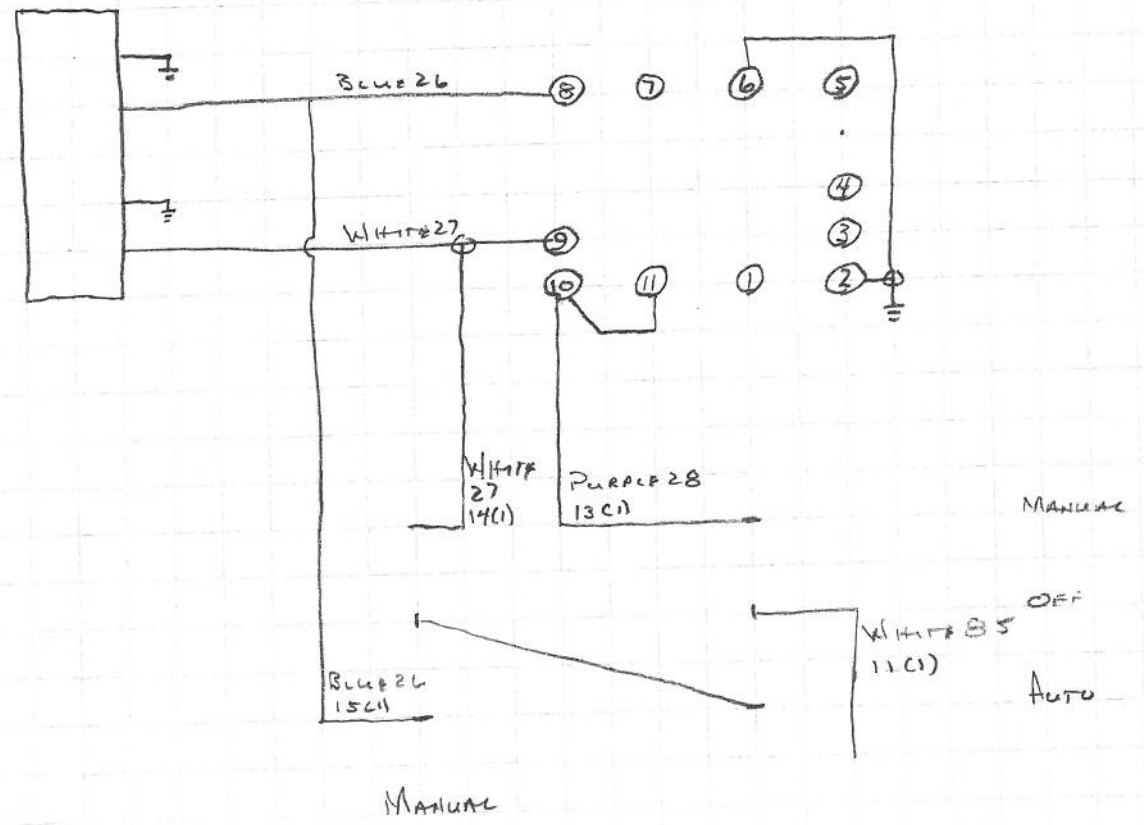 BLUE 26
8
7
6
5
4
WHITE 27
9
3
10
11
1
2
WHITE
27
14(1)
PURPLE 28
13(1)
MANUAL
OFF
WHITE 85
11(1)
BLUE 26
15(1)
AUTO
MANUAL